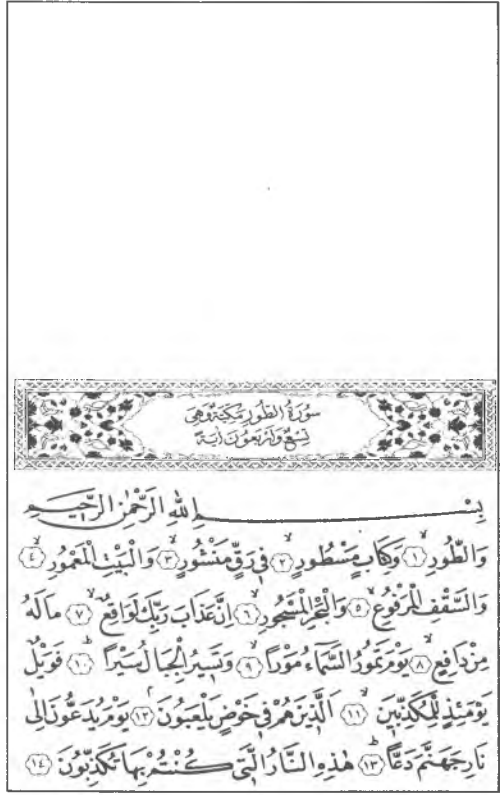 سُورَةُ الطُّورِ مَكِّيَّةٌ وَهِيَ
تِسْعٌ وَاَرْبَعُونَ اٰيَةً
بِسْــــــــمِ اللّٰهِ الرَّحْمٰنِ الرَّحٖيمِ
وَالطُّورِۙ ﴿١﴾ وَكِتَابٍ مَسْطُورٍۙ ﴿٢﴾ فٖي رَقٍّ مَنْشُورٍۙ ﴿٣﴾ وَالْبَيْتِ الْمَعْمُورِۙ ﴿٤﴾
وَالسَّقْفِ الْمَرْفُوعِۙ ﴿٥﴾ وَالْبَحْرِ الْمَسْجُورِۙ ﴿٦﴾ اِنَّ عَذَابَ رَبِّكَ لَوَاقِعٌۙ ﴿٧﴾ مَا لَهُ
مِنْ دَافِعٍۙ ﴿٨﴾ يَوْمَ تَمُورُ السَّمَٓاءُ مَوْرًاۙ ﴿٩﴾ وَتَسٖيرُ الْجِبَالُ سَيْرًاؕ ﴿١٠﴾ فَوَيْلٌ
يَوْمَئِذٍ لِلْمُكَذِّبٖينَۙ ﴿١١﴾ اَلَّذٖينَ هُمْ فٖي خَوْضٍ يَلْعَبُونَۢ ﴿١٢﴾ يَوْمَ يُدَعُّونَ اِلٰى
نَارِ جَهَنَّمَ دَعًّاؕ ﴿١٣﴾ هٰذِهِ النَّارُ الَّتٖي كُنْتُمْ بِهَا تُكَذِّبُونَ ﴿١٤﴾